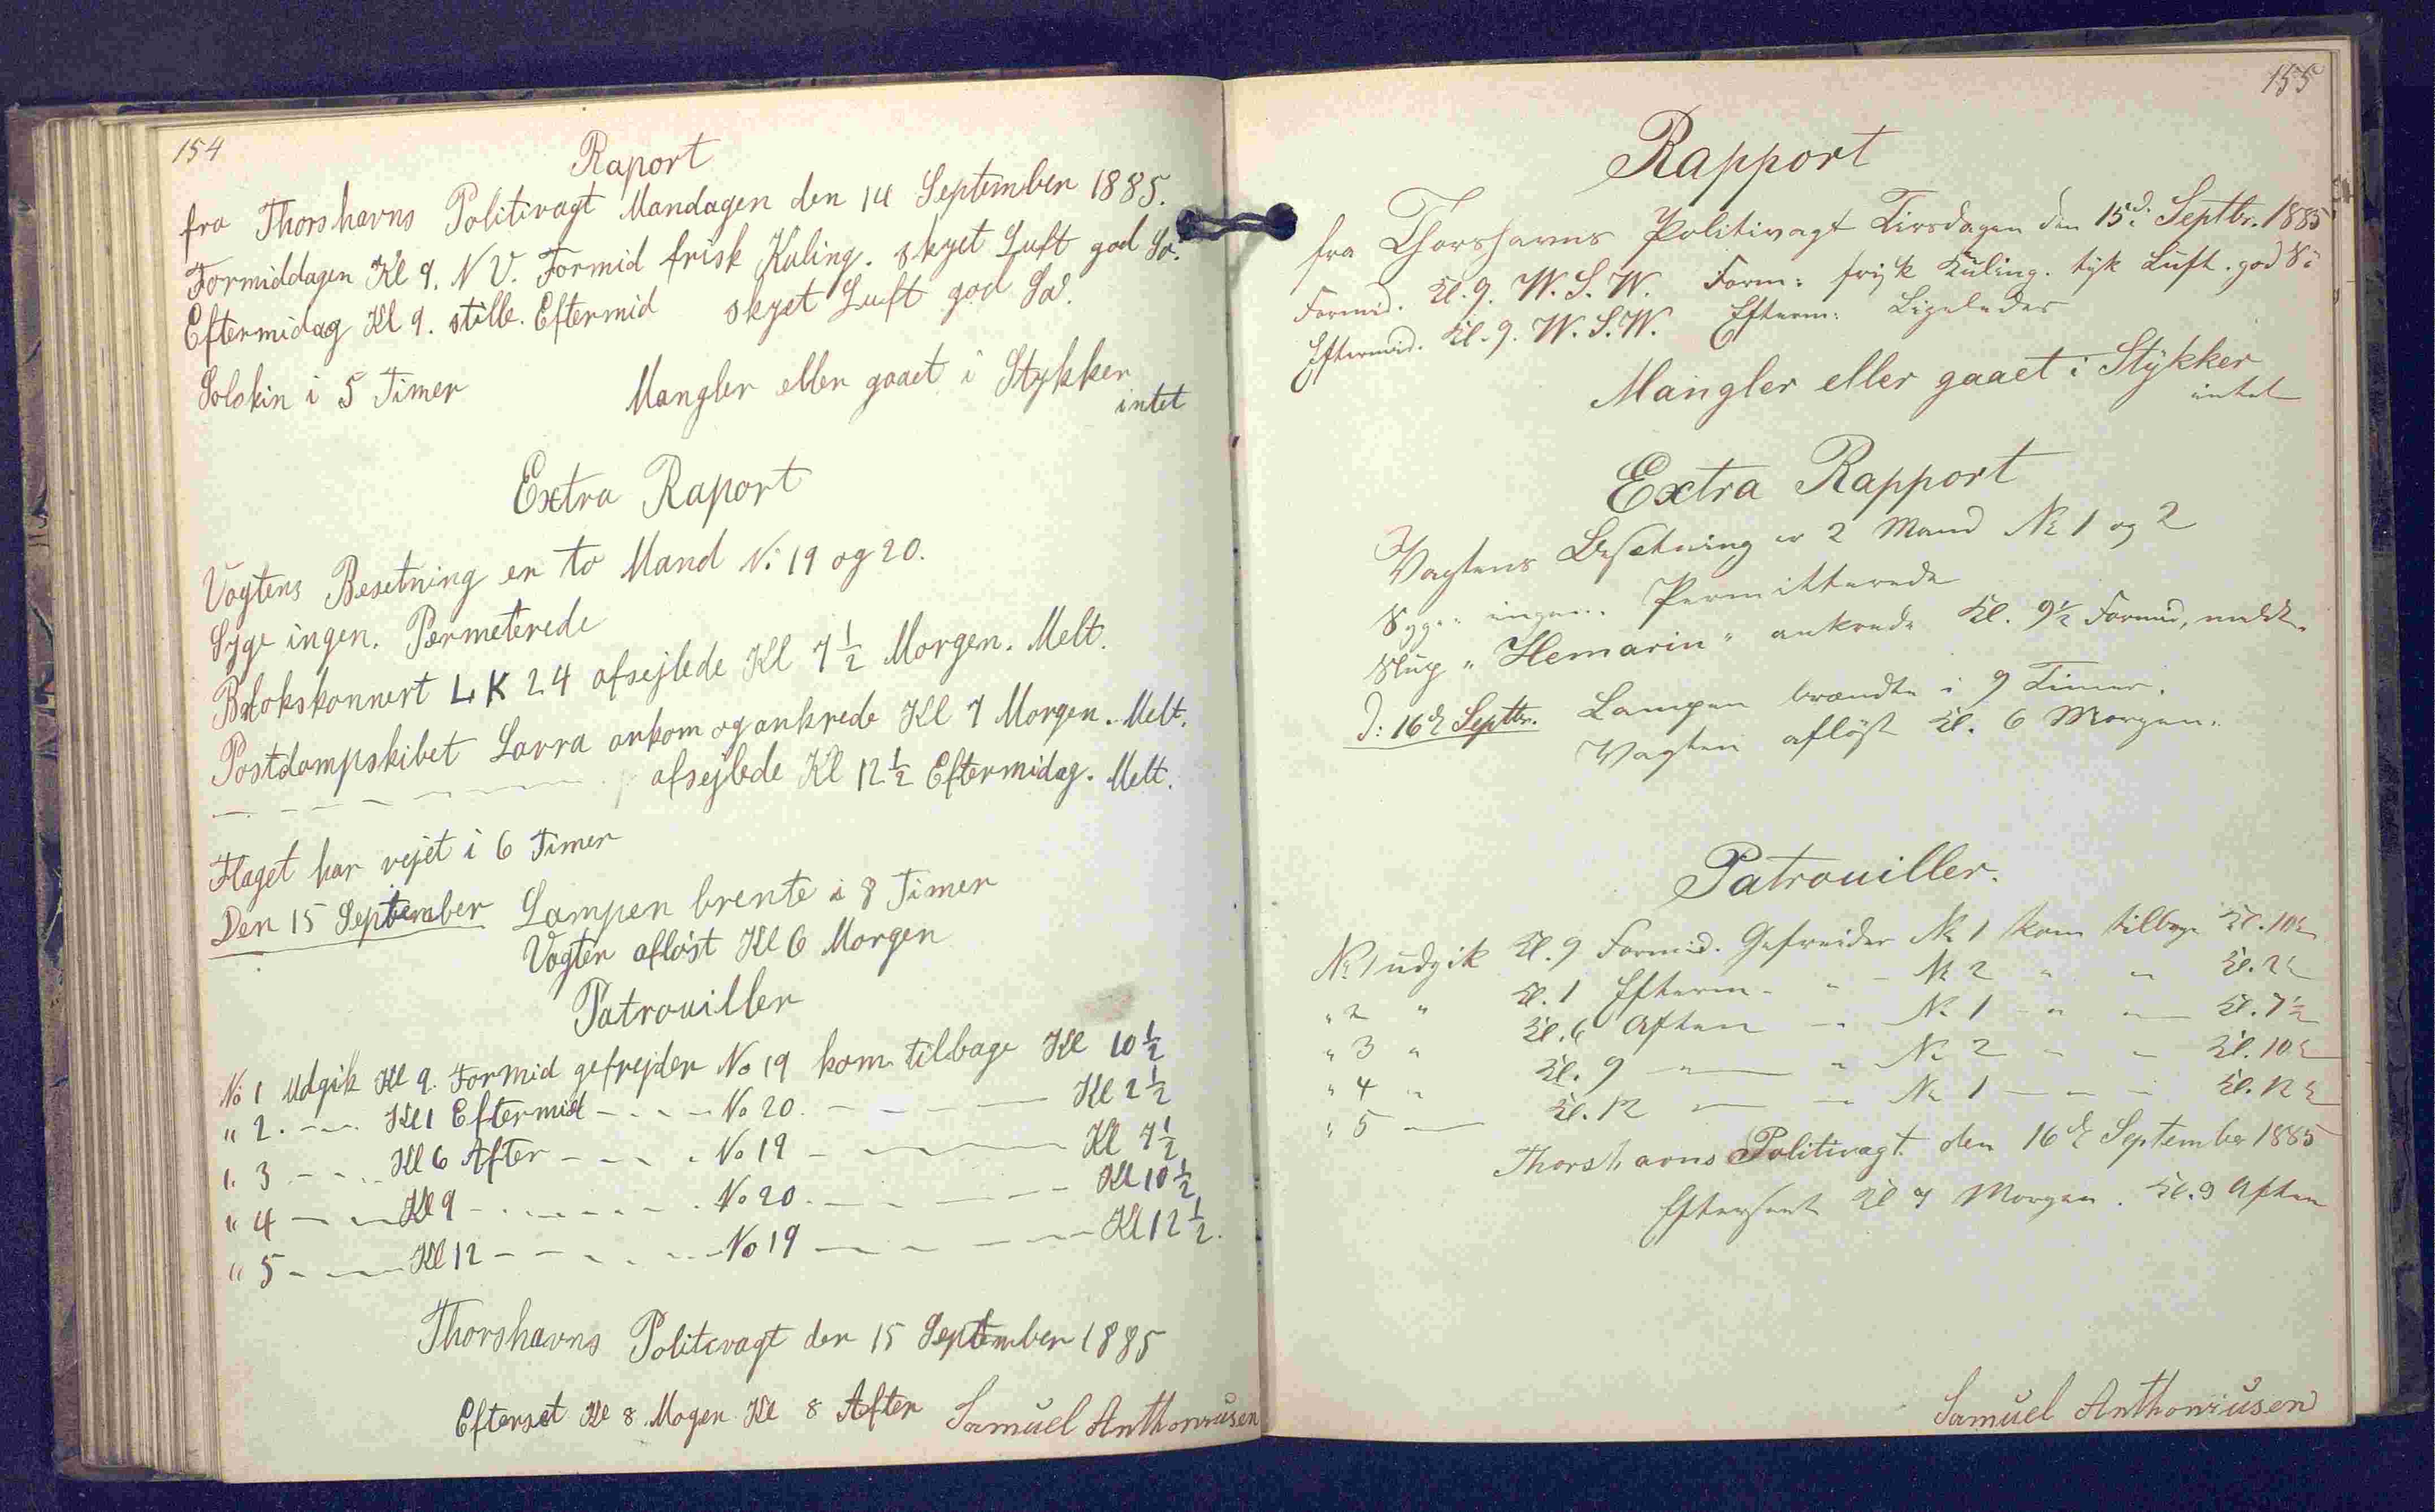 154
Raport
fra Thorshavns Politivagt Mandagen den 14 September 1885.
Formiddagen Kl 9. N V. Formid frisk Kuling. skyet Luft god Sø.
Eftermidag Kl 9. stille. Eftermid skyet Luft god Sø.
Solskin i 5 Timer
Mangler eller gaaet i Stykker
intet
Extra Raport
Vagtens Besetning er to Mand No 19 og 20.
Syge ingen. Permeterede
Blokskonnert LK 24 afsejlede Kl 7 1/2 Morgen. Melt.
Postdampskibet Lavra ankom og ankrede Kl 7 Morgen. Melt.
— — — — — afsejlede Kl 12 1/2 Eftermidag. Melt.
Flaget har vejet i 6 Timer
Den 15 September Lampen brente i 8 Timer
Vagten afløst Kl 6 Morgen
Patrouiller
No 1 Udgik Kl 9. Formid gefrejder No 19 kom tilbage Kl 10 1/2
" 2. — — Kl 1 Eftermid — — — No 20. — — — Kl 2 1/2
" 3 — — Kl 6 Aften — — — No 19 — — — Kl 7 1/2
" 4 — — Kl 9 — — — No 20. — — — Kl 10 1/2
" 5 — — Kl 12 — — — No 19 — — — Kl 12 1/2.
Thorshavns Politivagt den 15 September 1885
Efterset Kl 8. Mogen Kl 8 Aften Samuel Anthoniusen
155
Rapport
fra Thorshavns Politivagt Tirsdagen den 15d. Septbr. 1885
Formid. Kl. 9. W. S. W. Form: frisk Kuling. tyk Luft. god Sø
Eftermid. Kl. 9. W. S. W. Efterm: Ligeledes
Mangler eller gaaet i Stykker
intet
Extra Rapport
Vagtens Besetning er 2 Mand No 1 og 2
Syge ingen. Permitterede
Slup "Hemarin" ankrede Kl. 9 1/2 Formid, meldt.
D: 16de Septbr. Lampen brændte i 9 Timer.
Vagten afløst Kl. 6 Morgen.
Patrouiller.
No 1 udgik Kl. 9 Formid. Gefreider No 1 kom tilbage Kl. 10 1/2
" 2 " Kl. 1 Efterm. " — No 2 " " Kl. 2 1/2
" 3 " Kl. 6 Aften — No 1 — " — Kl. 7 1/2
" 4 " Kl. 9 — " — " No 2 " " Kl. 10 1/2
" 5 — Kl. 12 — — No 1 — — — Kl. 12 1/2
Thorshavns Politivagt den 16de September 1885
Efterseet Kl 7 Morgen. Kl. 9 Aften
Samuel Anthoniusen